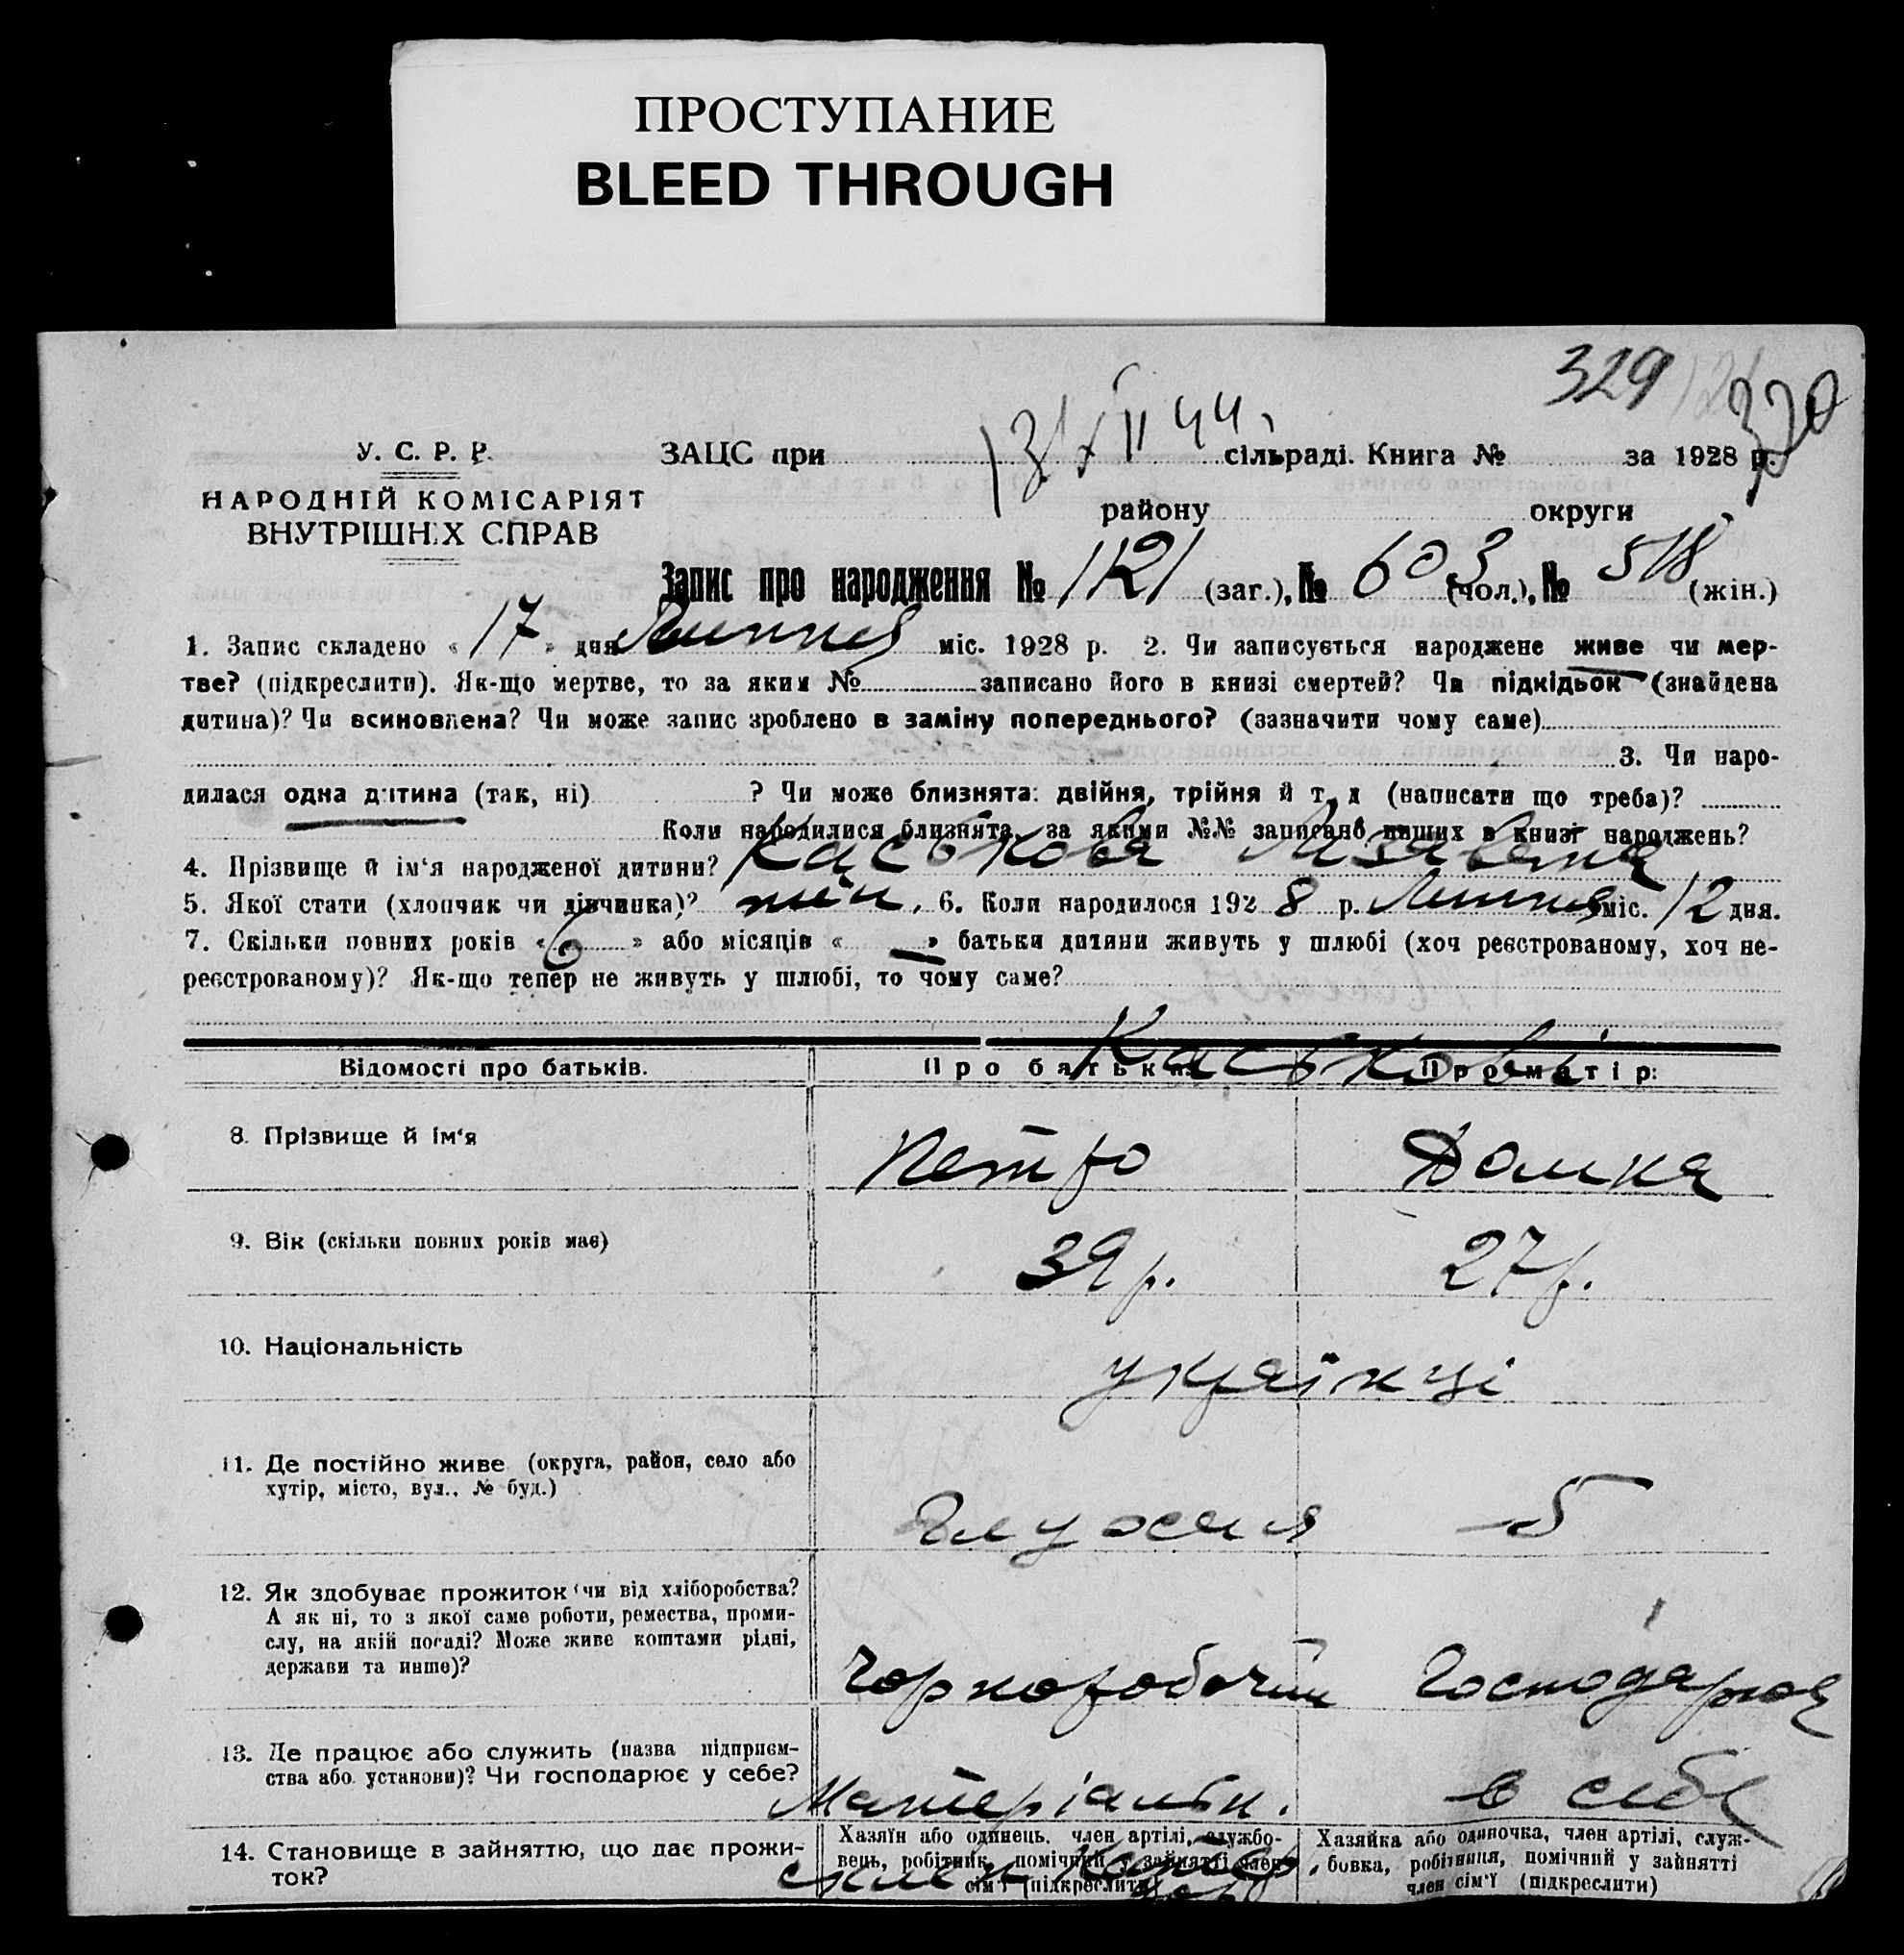 ПРОСТУПАНИЕ
BLEED THROUGH
329
320
13/XII 44
У. С. Р. Р.
ЗАЦС при сільраді. Книга № за 1928 р.
НАРОДНІЙ КОМІСАРІЯТ
ВНУТРІШНІХ СПРАВ
району округи
Запис про народження № 1121 (заг.), № 603 (чол.), № 518 (жін.)
1. Запис складено « 17 » дня Липня міс. 1928 р. 2. Чи записується народжене живе чи мер-
тве? (підкреслити). Як-що мертве, то за яким № записано його в книзі смертей? Чи підкідьок (знайдена
дитина)? Чи всиновлена? Чи може запис зроблено в заміну попереднього? (зазначити чому саме)
3. Чи наро-
дилася одна дитина (так, ні) ? Чи може близнята: двійня, трійня й т. д (написати що треба)?
Коли народилися близнята, за якими №№ записано инших в книзі народжень?
4. Прізвище й ім'я народженої дитини? Каськова Лизавета
5. Якої стати (хлопчик чи дівчинка)? жін. 6. Коли народилося 1928 р. Липня міс. 12 дня.
7. Скільки повних років « 6 » або місяців « — » батьки дитини живуть у шлюбі (хоч реєстрованому, хоч не-
реєстрованому)? Як-що тепер не живуть у шлюбі, то чому саме?
Каськові
Відомості про батьків. Про батька: Про матір:
8. Прізвище й ім'я Петро Домка
9. Вік (скільки повних років має) 39 р. 27 р.
10. Національність українці
11. Де постійно живе (округа, район, село або
хутір, місто, вул., № буд.)
5
12. Як здобуває прожиток (чи від хліборобства?
А як ні, то з якої саме роботи, ремества, проми-
слу, на якій посаді? Може живе коштами рідні,
держави та инше)?
Чорноробочий Господарює
13. Де працює або служить (назва підприєм-
ства або установи)? Чи господарює у себе?
Матеріальн. в себе
14. Становище в зайняттю, що дає прожи-
ток?
Хазяїн або одинець, член артілі, службо-
вець, робітник, помічний у зайнятті член
сім'ї (підкреслити)
Хазяйка або одиночка, член артілі, служ-
бовка, робітниця, помічний у зайнятті
член сім'ї (підкреслити)